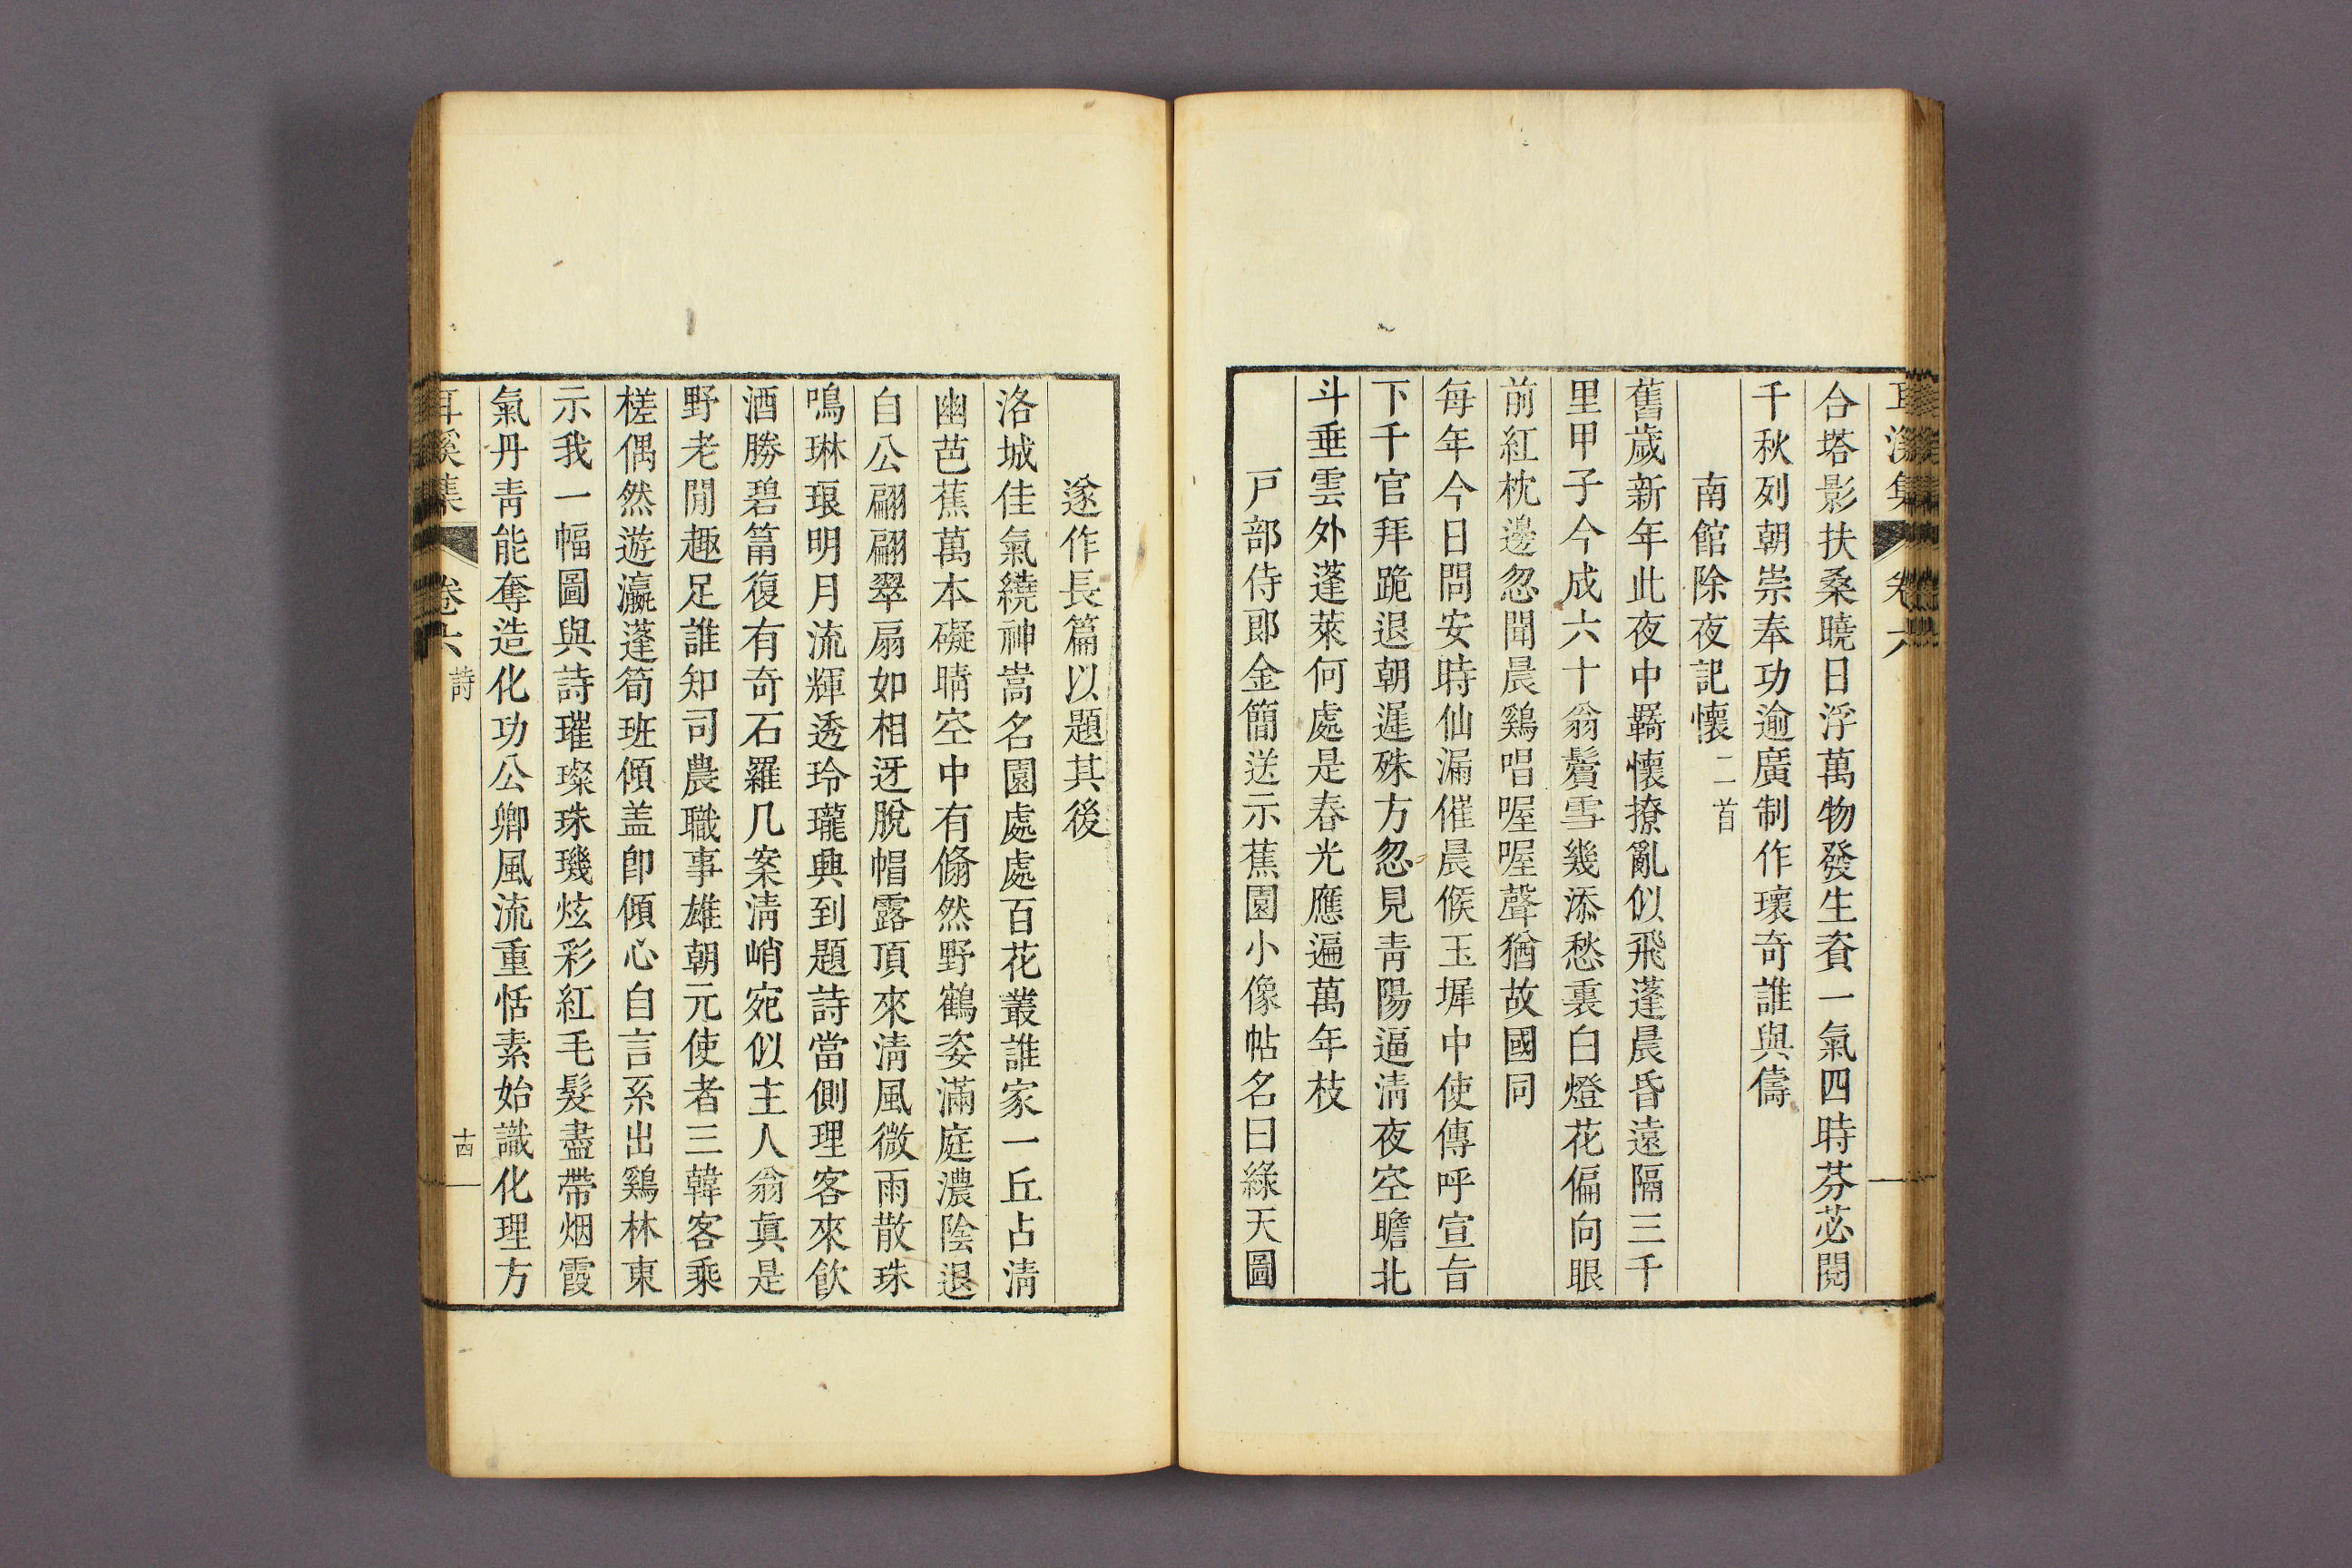 耳溪集 卷六
合塔影扶桑曉日浮萬物發生資一氣四時芬苾閱
千秋列朝崇奉功逾廣制作瓌奇誰與儔
南館除夜記懷二首
舊歲新年此夜中羇懷撩亂似飛蓬晨昏遠隔三千
里甲子今成六十翁鬢雪幾添愁裏白燈花偏向眼
前紅枕邊忽聞晨鷄唱喔喔聲猶故國同
每年今日問安時仙漏催晨候玉墀中使傳呼宣旨
下千官拜跪退朝遲殊方忽見靑陽逼淸夜空瞻北
斗垂雲外蓬萊何處是春光應遍萬年枝
戶部侍郞金簡送示蕉園小像帖名曰綠天圖
遂作長篇以題其後
洛城佳氣繞神嵩名園處處百花叢誰家一丘占淸
幽芭蕉萬本礙晴空中有翛然野鶴姿滿庭濃陰退
自公翩翩翠扇如相迓脫帽露頂來淸風微雨散珠
鳴琳琅明月流輝透玲瓏興到題詩當側理客來飮
酒勝碧筩復有奇石羅几案淸峭宛似主人翁眞是
野老閒趣足誰知司農職事雄朝元使者三韓客乘
槎偶然遊瀛蓬筍班傾盖卽傾心自言系出鷄林東
示我一幅圖與詩璀璨珠璣炫彩紅毛髮盡帶烟霞
氣丹靑能奪造化功公卿風流重恬素始識化理方
耳溪集 卷六 詩 十四